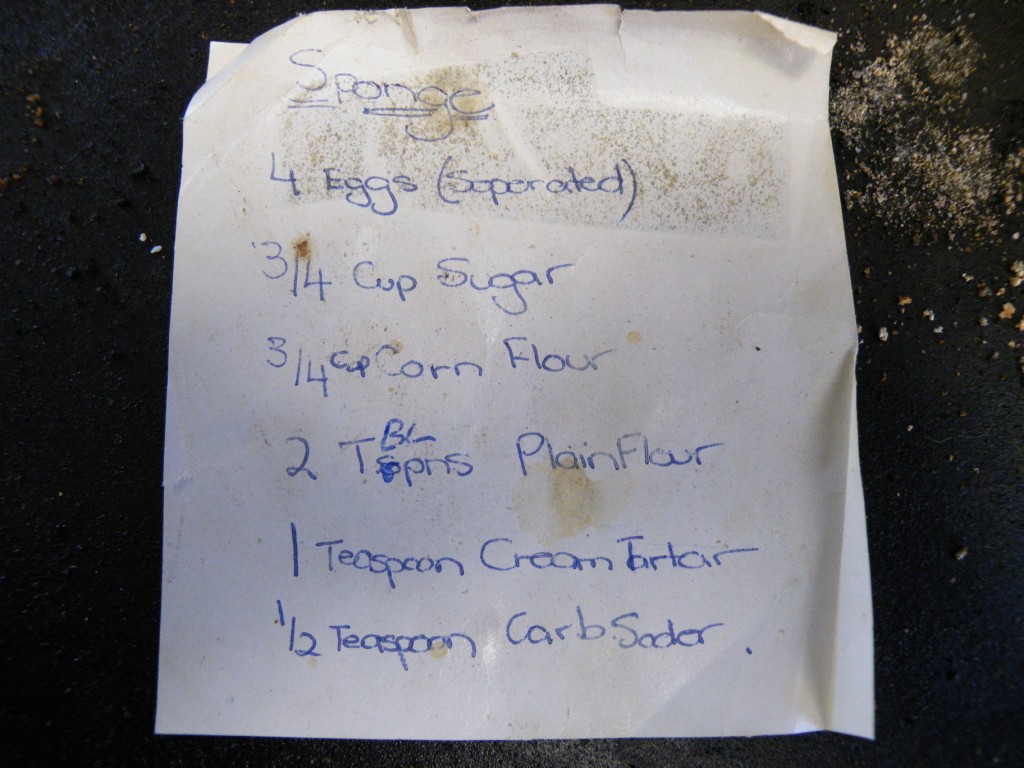 Sponge
4 Eggs (Seperated)
3/4 Cup Sugar
3/4 cup Corn Flour
2 TBLspns Plain Flour
1 Teaspoon Cream Tartar
1/2 Teaspoon Carb Soder.